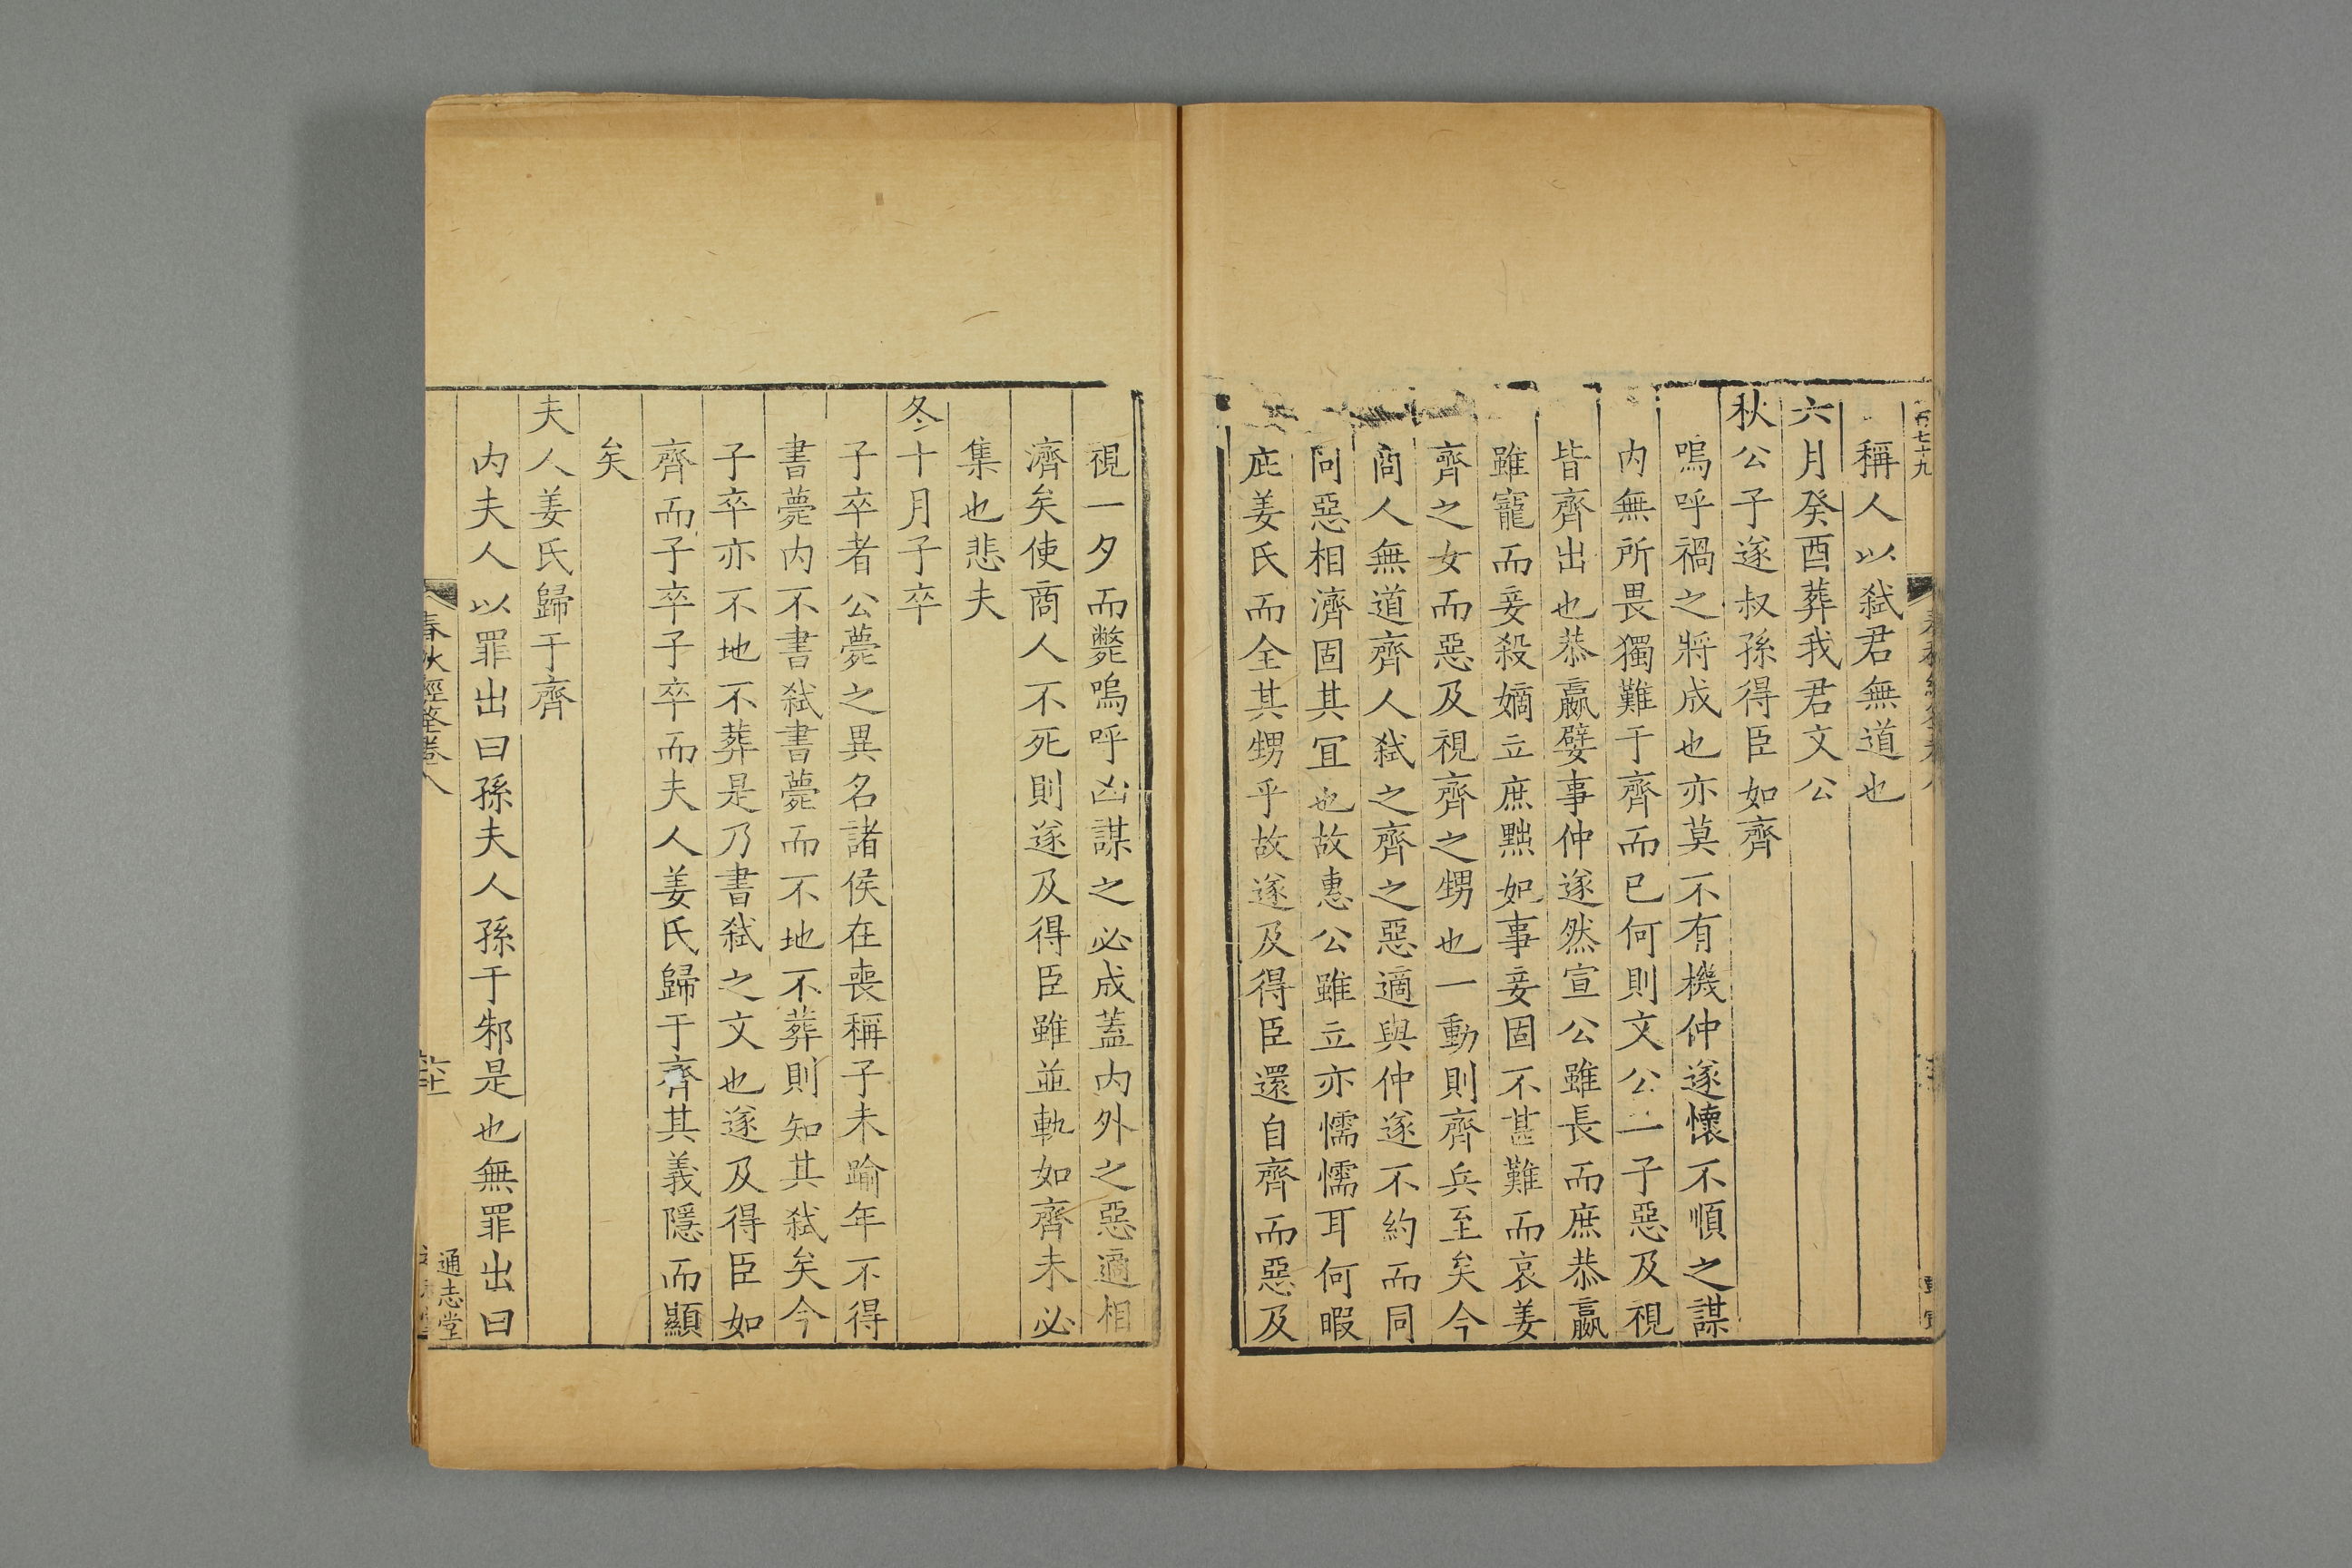 百七十九
稱人以弑君無道也
六月癸酉葬我君文公
秋公子遂叔孫得臣如齊
嗚呼禍之將成也亦莫不有機仲遂懷不順之謀
内無所畏獨難于齊而已何則文公二子惡及視
皆齊出也恭嬴嬖事仲遂然宣公雖長而庶恭嬴
雖寵而妾殺嫡立庶黜妃事妾固不甚難而哀姜
齊之女而惡及視齊之甥也一動則齊兵至矣今
商人無道齊人弑之齊之惡適與仲遂不約而同
同惡相濟固其宜也故惠公雖立亦懦懦耳何暇
庇姜氏而全其甥乎故遂及得臣還自齊而惡及
視一夕而斃嗚呼凶謀之必成蓋内外之惡適相
濟矣使商人不死則遂及得臣雖並軌如齊未必
集也悲夫
冬十月子卒
子卒者公薨之異名諸侯在喪稱子未踰年不得
書薨内不書弑書薨而不地不葬則知其弑矣今
子卒亦不地不葬是乃書弑之文也遂及得臣如
齊而子卒子卒而夫人姜氏歸于齊其義隱而顯
矣
夫人姜氏歸于齊
内夫人以罪出曰孫夫人孫于邾是也無罪出曰
春秋經筌卷八
通志堂